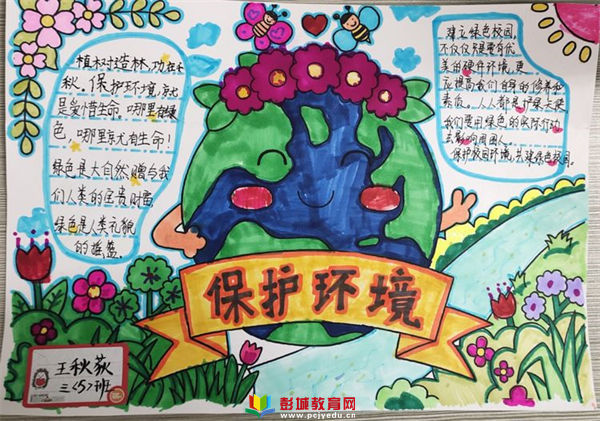 植树造林，功在千
秋。保护环境，就
是爱惜生命。哪里有绿
色，哪里就有生命！
绿色是大自然赠与我
们人类的宝贵财富
绿色是人类礼貌
的摇篮
建立绿色校园，
不仅仅只要有优
美的硬件环境，更
应提高我们自身的修养和
素质。人人都是护绿大使
我们要用绿色的实际行动
去影响周围人。
保护校园环境，共建绿色校园。
保护环境
王秋荻
三〈5〉班
彭城教育网
www.pcjyedu.cn